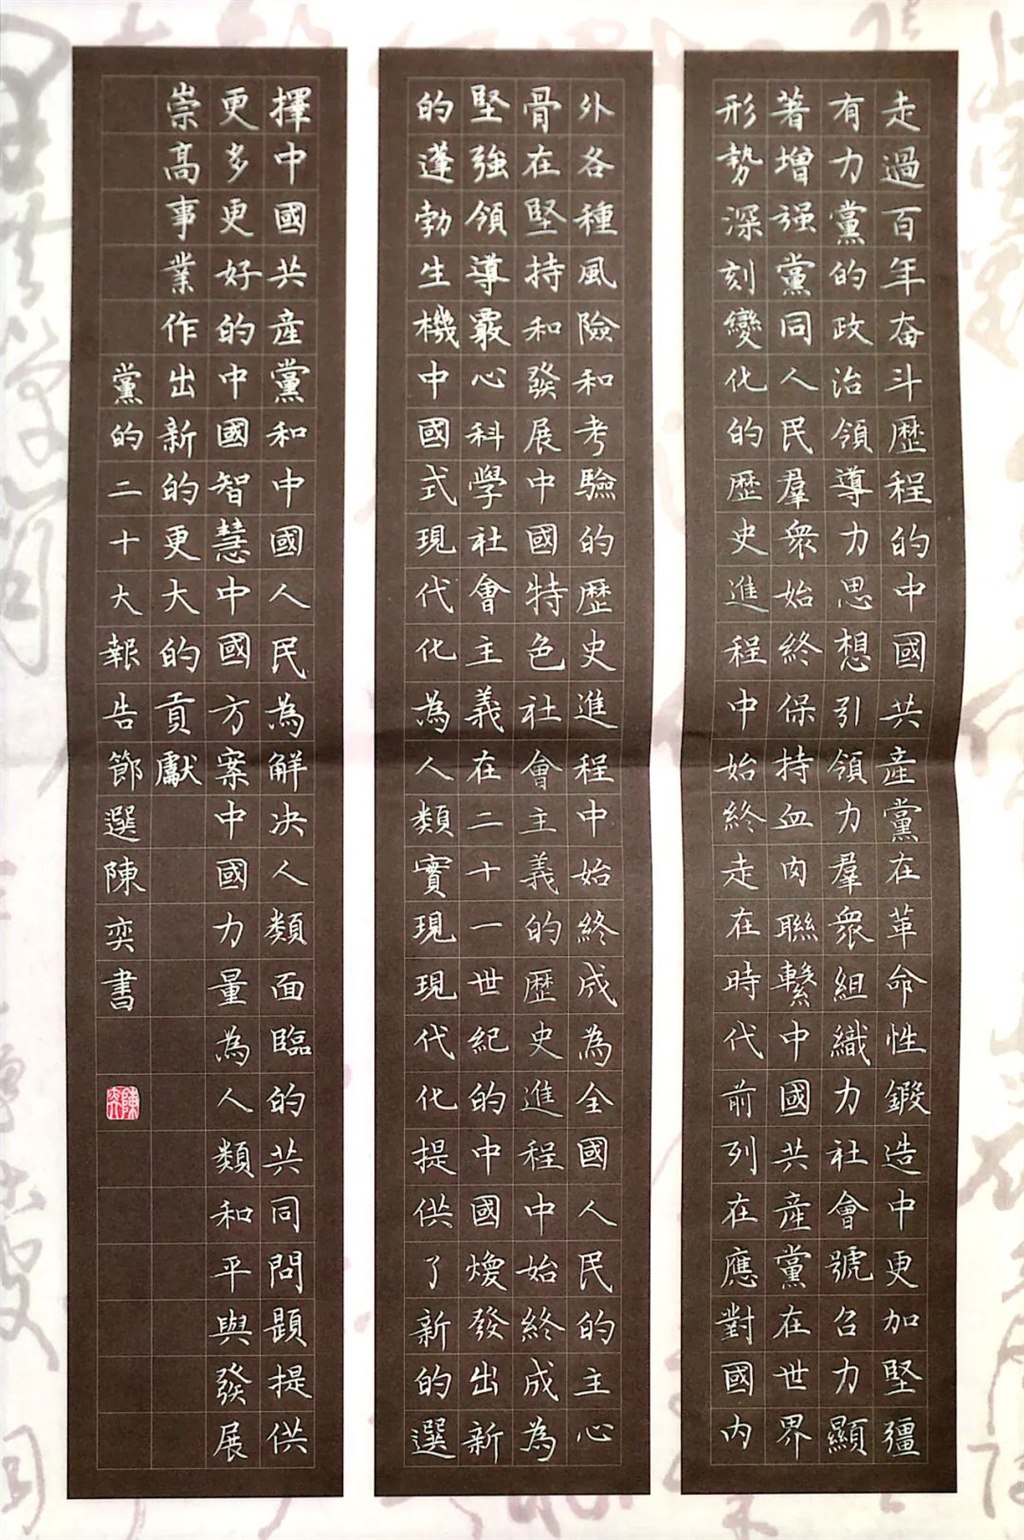 走過百年奋斗歷程的中國共產黨在革命性鍛造中更加堅彊
有力黨的政治領導力思想引領力羣眾組織力社會號召力顯
著增强黨同人民羣眾始終保持血肉聯繫中國共產黨在世界
形勢深刻變化的歷史進程中始終走在時代前列在應對國内
外各種風險和考驗的歷史進程中始終成為全國人民的主心
骨在堅持和發展中國特色社會主義的歷史進程中始終成為
堅強領導覈心科學社會主義在二十一世紀的中國煥發出新
的蓬勃生機中國式現代化為人類實現現代化提供了新的選
擇中國共產黨和中國人民為解决人類面臨的共同問題提供
更多更好的中國智慧中國方案中國力量為人類和平與發展
崇高事業作出新的更大的貢獻
黨的二十大報告節選陳奕書
陳奕